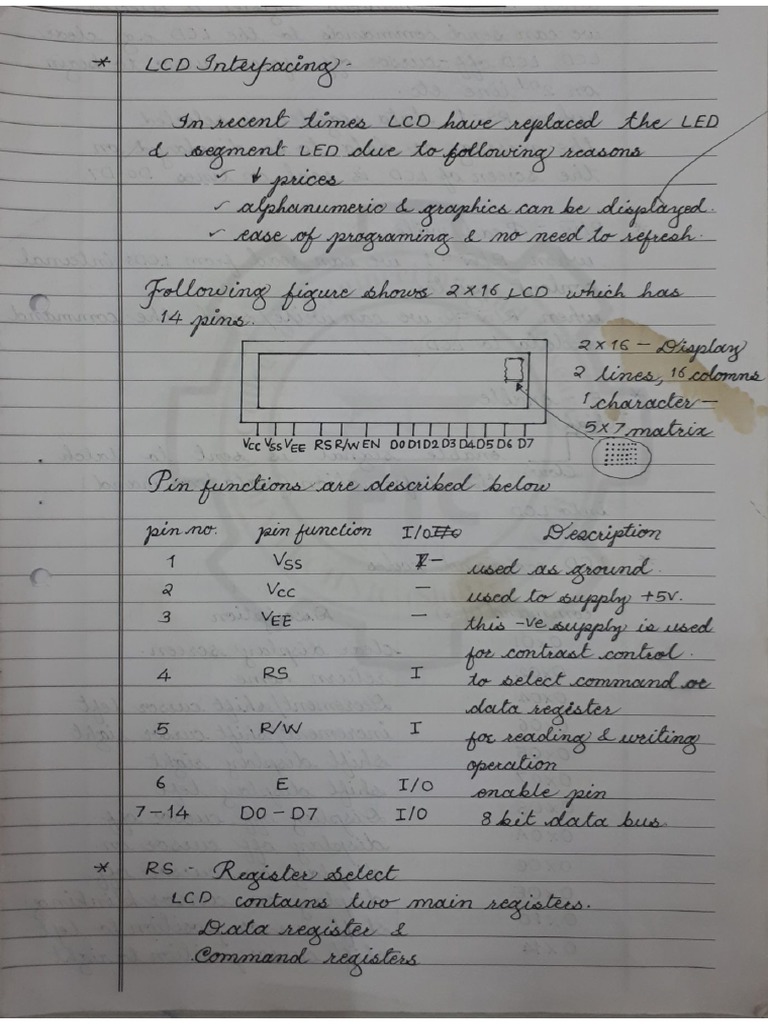 * LCD Interfacing -
In recent times LCD have replaced the LED
& segment LED due to following reasons
✓ ↓ prices
✓ alphanumeric & graphics can be displayed.
✓ ease of programing & no need to refresh.
Following figure shows 2×16 LCD which has
14 pins.
2×16 - Display
2 lines, 16 colomns
1 character -
5×7 matrix
VCC VSS VEE RS R/W EN D0 D1 D2 D3 D4 D5 D6 D7
Pin functions are described below
pin no. pin function I/O Description
1 VSS - used as ground.
2 VCC - used to supply +5v.
3 VEE - this -ve supply is used
for contrast control.
4 RS I to select command or
data register
5 R/W I for reading & writing
operation
6 E I/O enable pin
7-14 D0-D7 I/O 8 bit data bus.
* RS - Register Select
LCD contains two main registers.
Data register &
Command registers